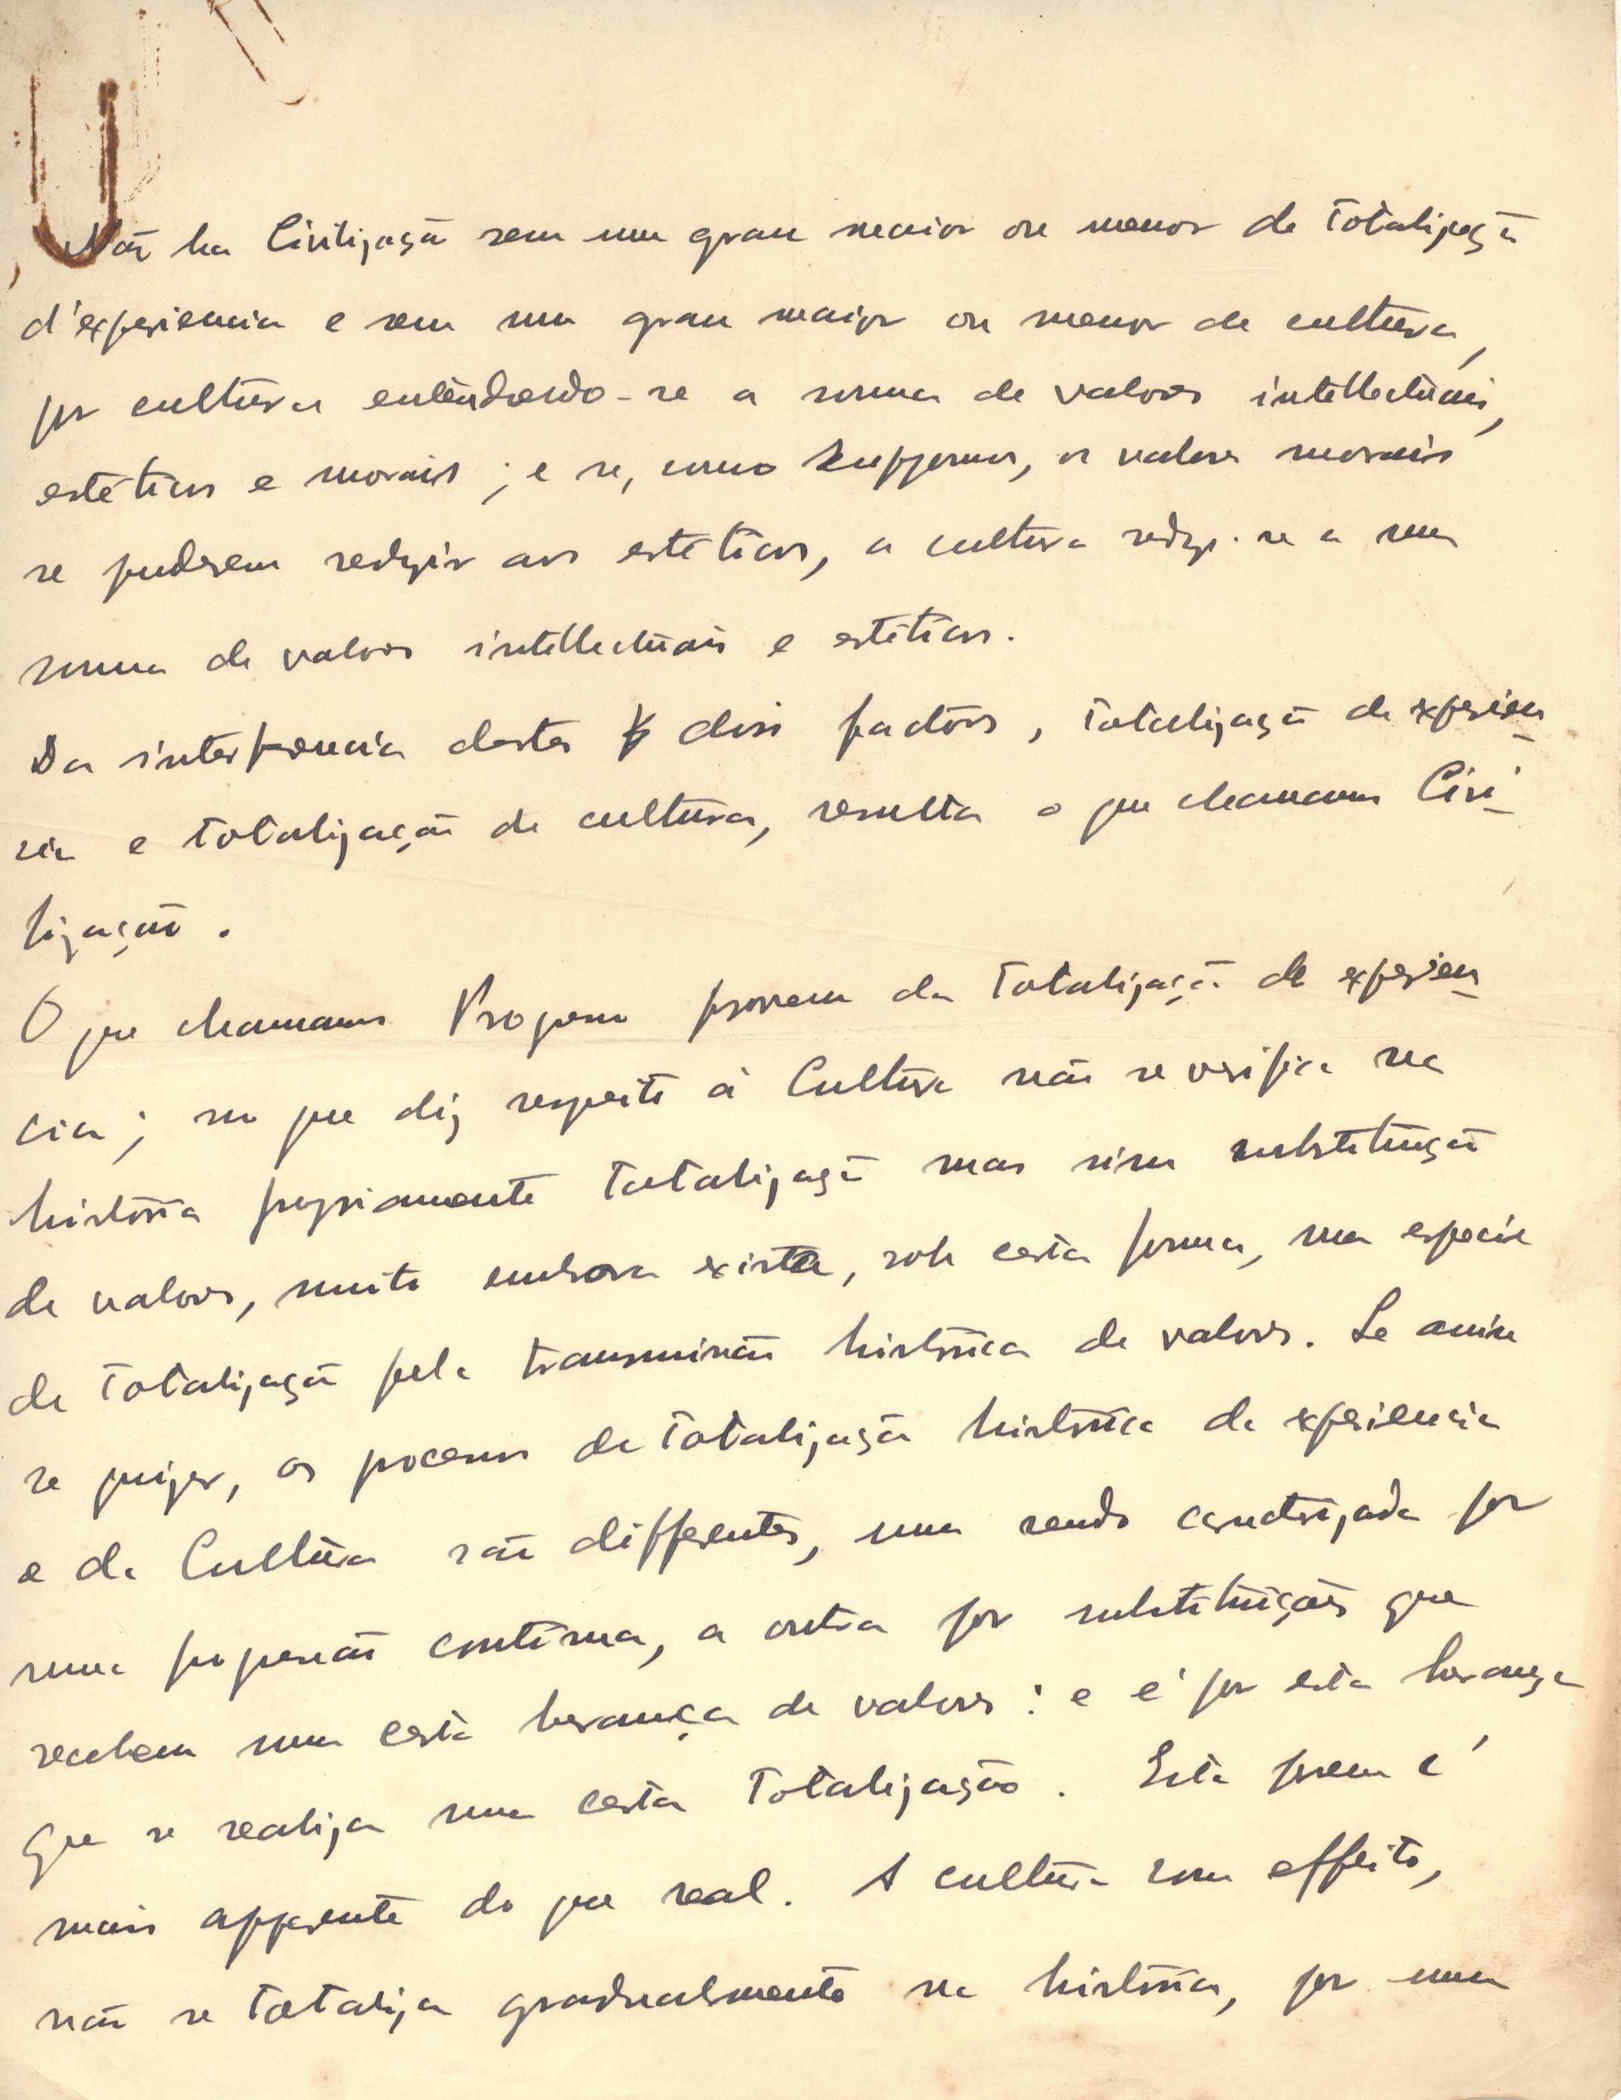 Não ha Civilização sem um grau maior ou menor de totalização
d'experiencia e sem um grau maior ou menor de cultura,
por cultura entendendo-se a somma de valores intellectuais,
estéticos e morais; e se, como suppomos, os valores morais
se puderem reduzir aos estéticos, a cultura reduz-se a uma
somma de valores intellectuais e estéticos.
Da interferencia destes dois factores, totalização de experien-
cia e totalização de cultura, resulta o que chamamos Civi-
lização.
O que chamamos Progresso provem da totalização de experien-
cia; no que diz respeito à Cultura não se verifica na
história propriamente totalização mas sim substituição
de valores, muito embora exista, sob certa forma, uma especie
de totalização pela transmissão histórica de valores. Se assim
se quizer, os processos de totalização histórica de experiencia
e de Cultura são differentes, uma sendo caracterizada por
uma progressão contínua, a outra por substituições que
recebem uma certa herança de valores: e é por esta herança
que se realiza uma certa totalização. Esta porem é
mais apparente do que real. A cultura com effeito,
não se totaliza gradualmente na história, por uma